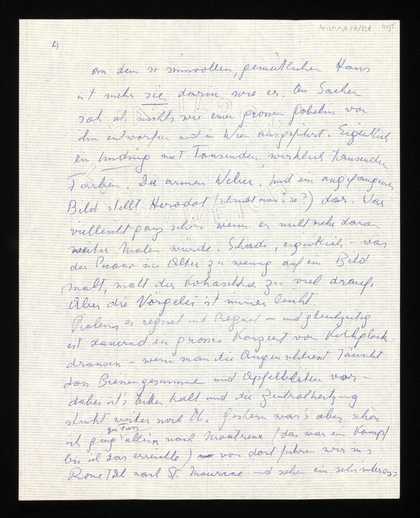 4)
an dem so sinnvollen, gemütlichen Haus
ist mehr sie daran wie er. An Sachen
sah ich nichts wie einen grossen Gobelin von
ihm entworfen und in Wien ausgeführt. Eigentlich
ein Unding mit Tausenden, wirklich Tausenden
Farben. Die armen Weber. Und ein angefangenes
Bild stellt Herodot (schreibt man's so?) dar. War
vielleicht ganz schön wenn er nicht mehr daran
weiter malen würde. Schade, eigentlich - was
der Picasso im Alter zu wenig auf ein Bild
malt, malt der Kokoschka zu viel drauf.
Aber die Vorgelei ist immer leicht
es regnet und regnet - und gleichzeitig
ist dauernd ein grosses Konzert von Kuhglocken
draussen - wenn man die Augen schliesst täuscht
das Bienengesumme und Apfelblüten vor
dabei ist's bitter kalt und die Zentralheizung
stinkt weiter nach Öl. Gestern war's aber schön
ich ging allein zu Fuss nach Montreux (das war ein Kampf
bis ich das erreichte) von dort fuhren wir ins
Rhone Tal nach St. Maurice und sahen ein